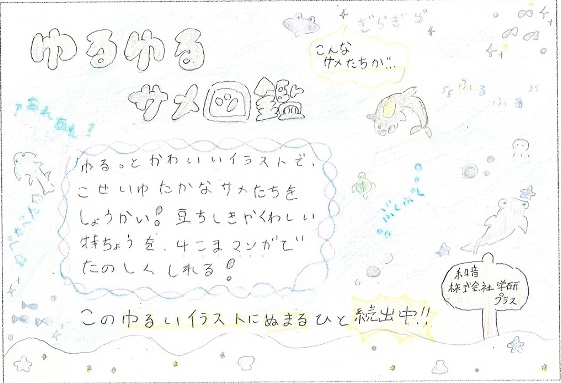 ゆるゆる
サメ図鑑
こんな
サメたちが…
ぎらぎら
ゆるっとかわいいイラストで、
こせいゆたかなサメたちを
しょうかい!豆ちしきやくわしい
特ちょうを、4こまマンガで
たのしくしれる!
このゆるいイラストにぬまるひと続出中!!
株式会社学研
プラス